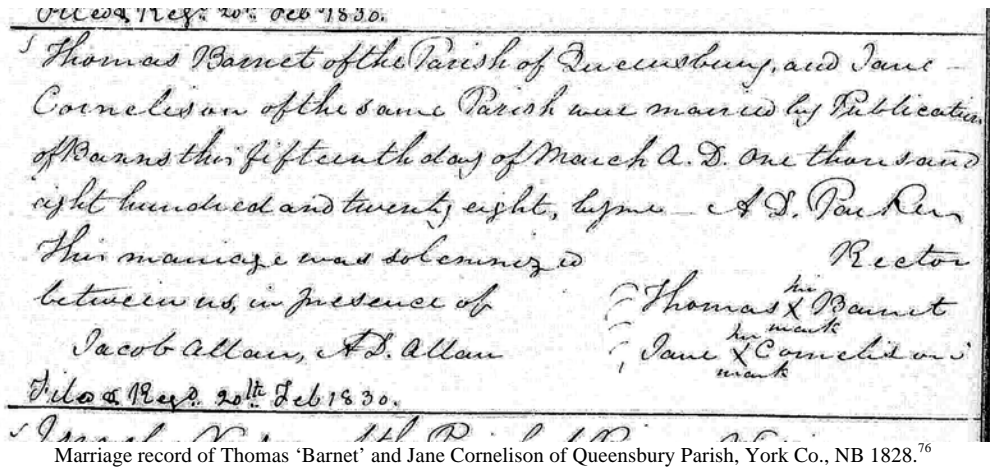 Filed & Regd. 20th Feb 1830.
Thomas Barnet of the Parish of Queensbury, and Jane
Cornelison of the same Parish were married by Publication
of Banns this fifteenth day of March A.D. one thousand
eight hundred and twenty eight, by me – A D. Parker
This marriage was solemnized Rector
between us, in presence of Thomas his X mark Barnet
Jacob Allan, A D. Allan Jane her X mark Cornelison
Filed & Regd. 20th Feb 1830.
Marriage record of Thomas ‘Barnet’ and Jane Cornelison of Queensbury Parish, York Co., NB 1828.76